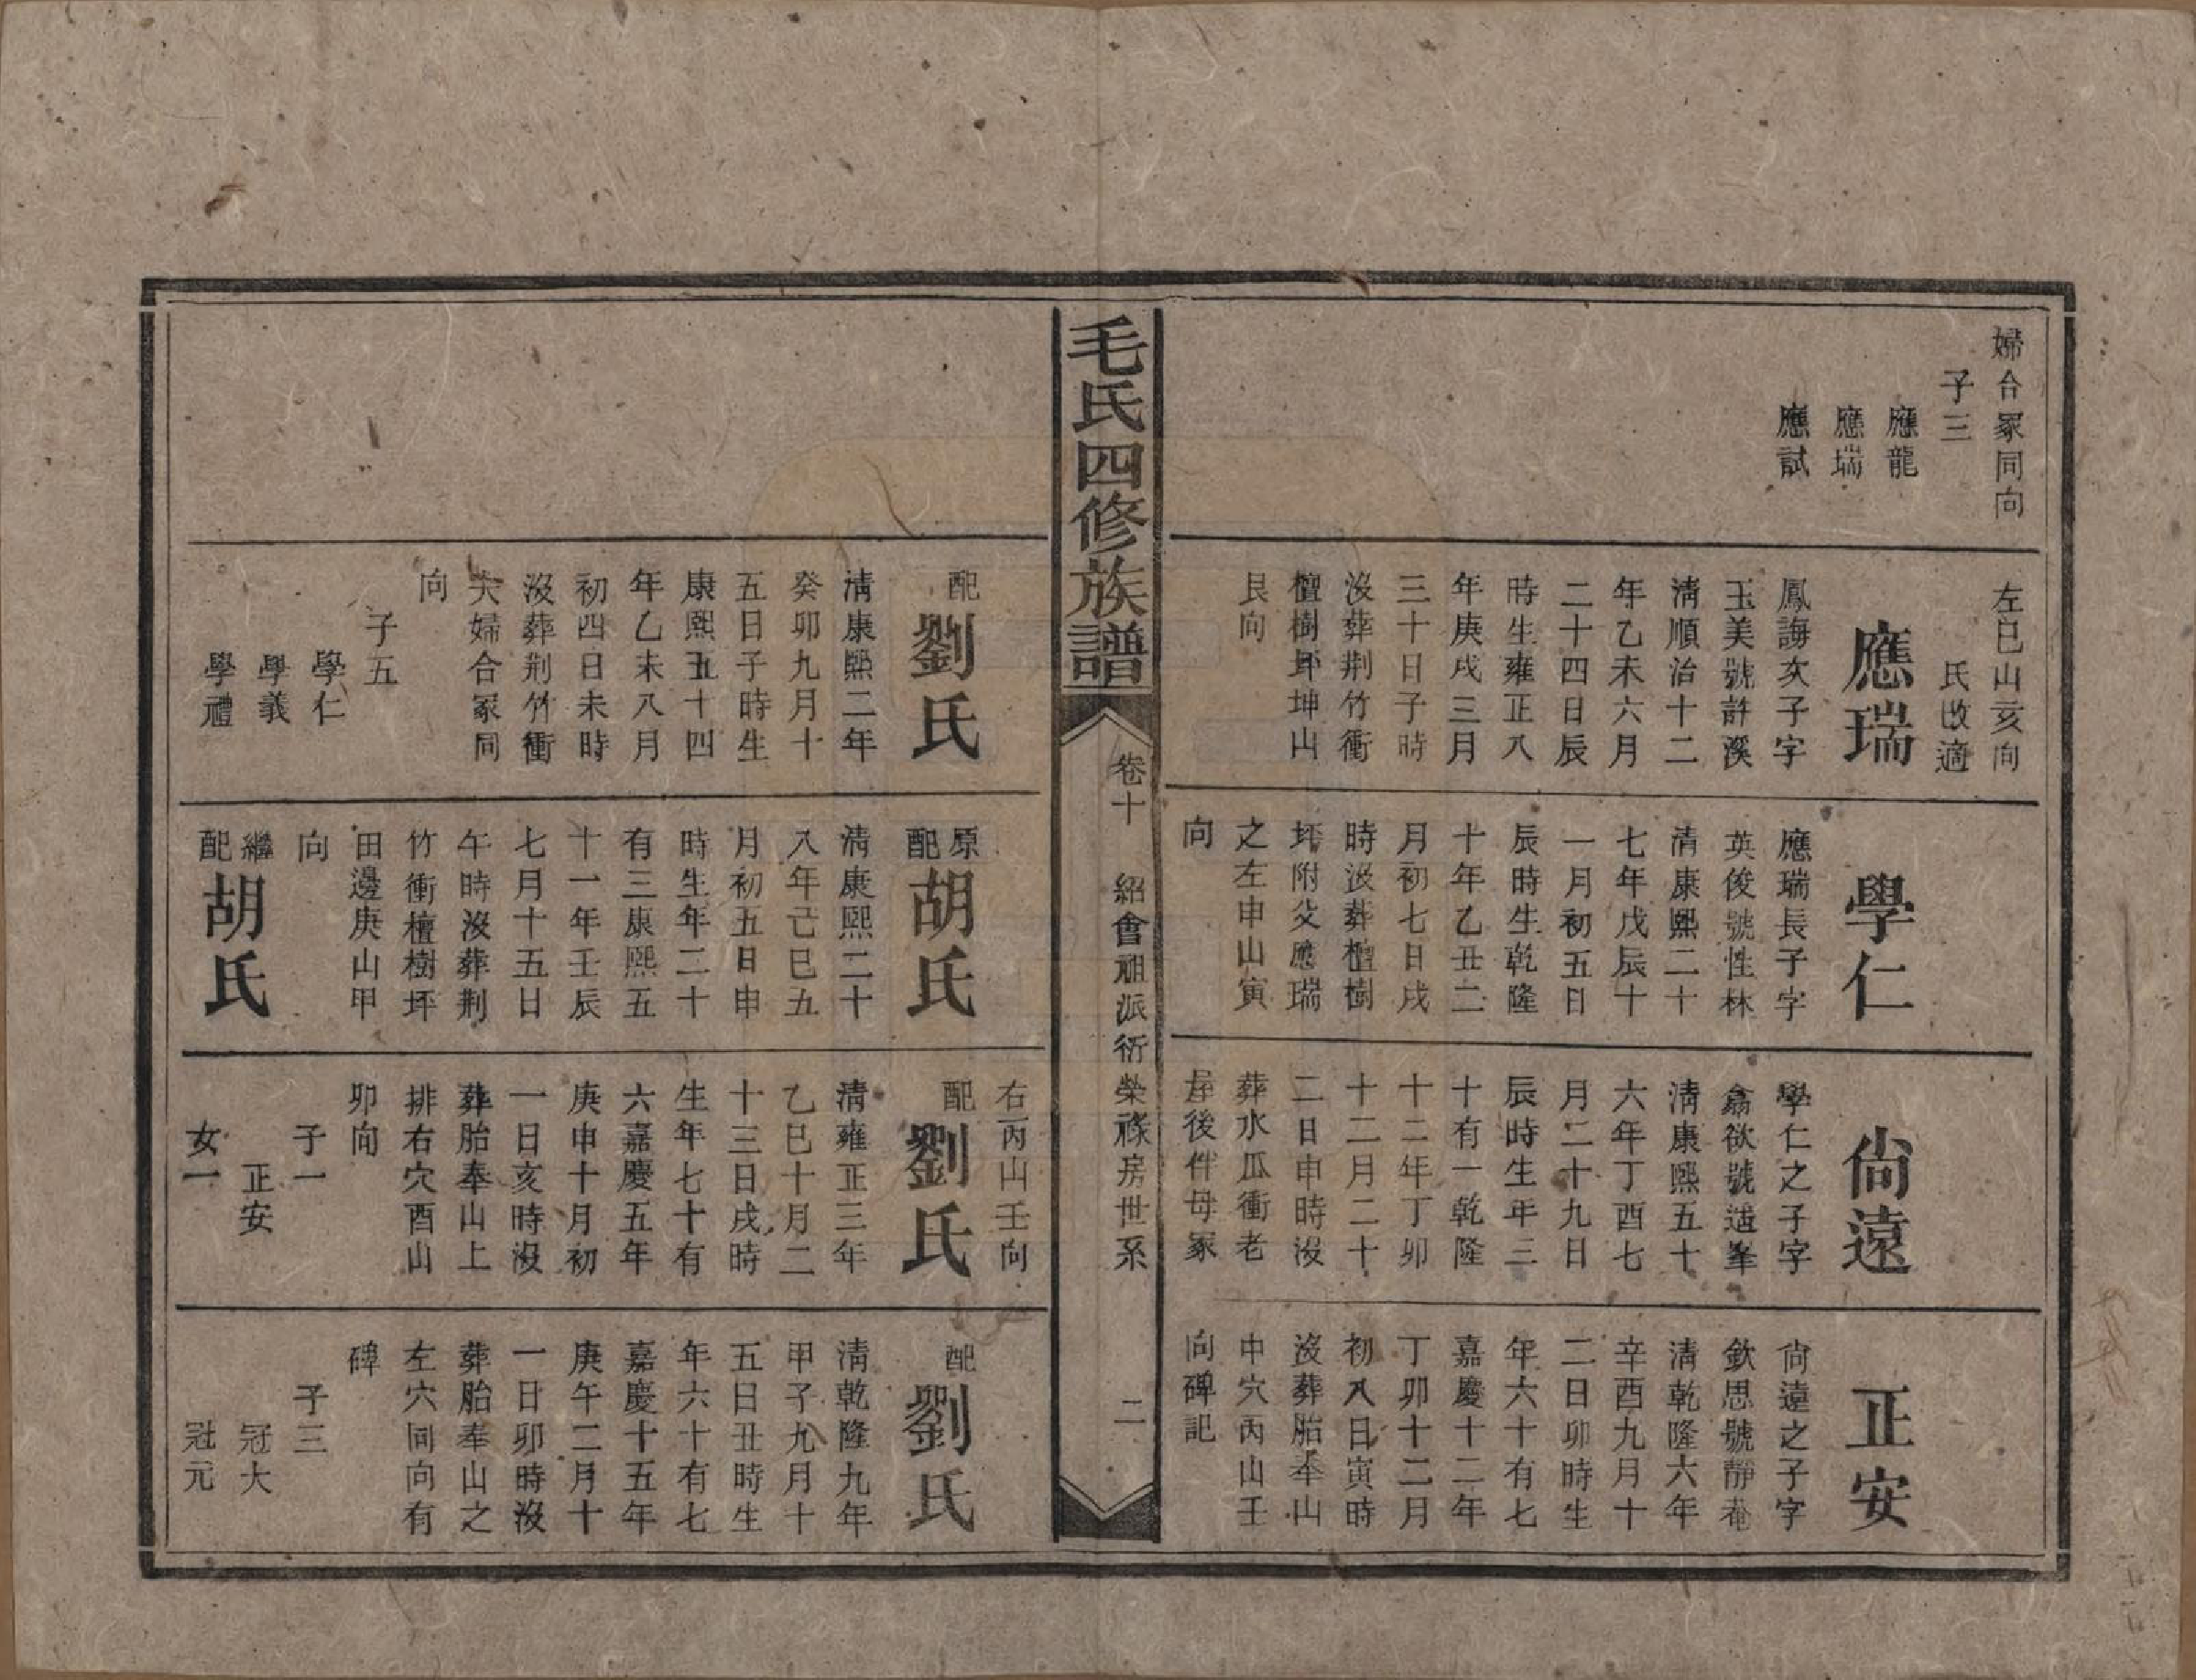 婦合冢同向
子三
應龍
應瑞
應試
左巳山亥向
氏改適
應瑞
鳳誨次子字
玉美號許溪
清順治十二
年乙未六月
二十四日辰
時生雍正八
年庚戌三月
三十日子時
沒葬荆竹衝
檀樹坪坤山
艮向
學仁
應瑞長子字
英俊號性林
清康熙二十
七年戊辰十
一月初五日
辰時生乾隆
十年乙丑二
月初七日戌
時沒葬檀樹
坪附父應瑞
之左申山寅
向
尙遠
學仁之子字
翕欲號遥峯
清康熙五十
六年丁酉七
月二十九日
辰時生年三
十有一乾隆
十二年丁卯
十二月二十
二日申時沒
葬水瓜衝老
屋後伴母冢
正安
尙遠之子字
欽思號靜菴
清乾隆六年
辛酉九月十
二日卯時生
年六十有七
嘉慶十二年
丁卯十二月
初八日寅時
沒葬胎奉山
中穴丙山壬
向碑記
毛氏四修族譜
卷十 紹會祖派衍榮祿房世系 二
配劉氏
清康熙二年
癸卯九月十
五日子時生
康熙五十四
年乙未八月
初四日未時
沒葬荆竹衝
夫婦合冢同
向
子五
學仁
學義
學禮
原配胡氏
清康熙二十
八年己巳五
月初五日申
時生年二十
有三康熙五
十一年壬辰
七月十五日
午時沒葬荆
竹衝檀樹坪
田邊庚山甲
向
繼配胡氏
右丙山壬向
配劉氏
清雍正三年
乙巳十月二
十三日戌時
生年七十有
六嘉慶五年
庚申十月初
一日亥時沒
葬胎奉山上
排右穴酉山
卯向
子一
正安
女一
配劉氏
清乾隆九年
甲子九月十
五日丑時生
年六十有七
嘉慶十五年
庚午二月十
一日卯時沒
葬胎奉山之
左穴同向有
碑
子三
冠大
冠元